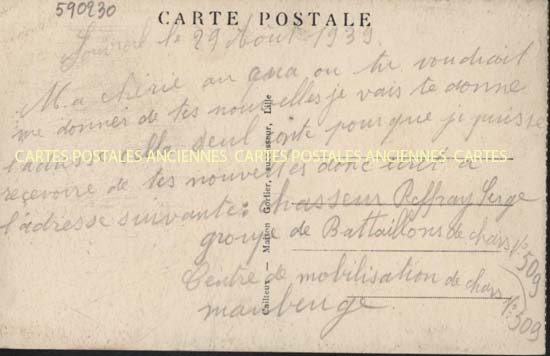 590230
CARTE POSTALE
le 29 Août 1939
Ma chérie au cas ou tu voudrait
me donner de tes nouvelles je vais te donne
l'adresse seul pour que je puisse
CARTES POSTALES ANCIENNES CARTES POSTALES ANCIENNES CARTES
recevoire de tes nouvelles donc écrit a
l'adresse suivante: chasseur Reffray Serge
groupe de Battaillons de chars N° 509
Centre de mobilisation de chars N° 509
maubeuge
Cailteux — Maison Gorlier, successeur, Lille